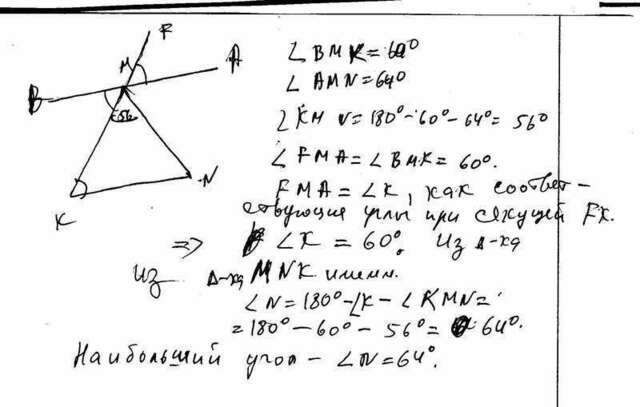 F
M
A
B
56
N
K
∠BMK = 60°
∠AMN = 64°
∠KMN = 180° - 60° - 64° = 56°
∠FMA = ∠BMK = 60°.
FMA = ∠K, как соответ-
ствующие углы при секущей FK.
⇒ ∠K = 60°. Из Δ-ка
Из Δ-ка MNK имеем.
∠N = 180° - ∠K - ∠KMN =
= 180° - 60° - 56° = 64°.
Наибольший угол - ∠N = 64°.